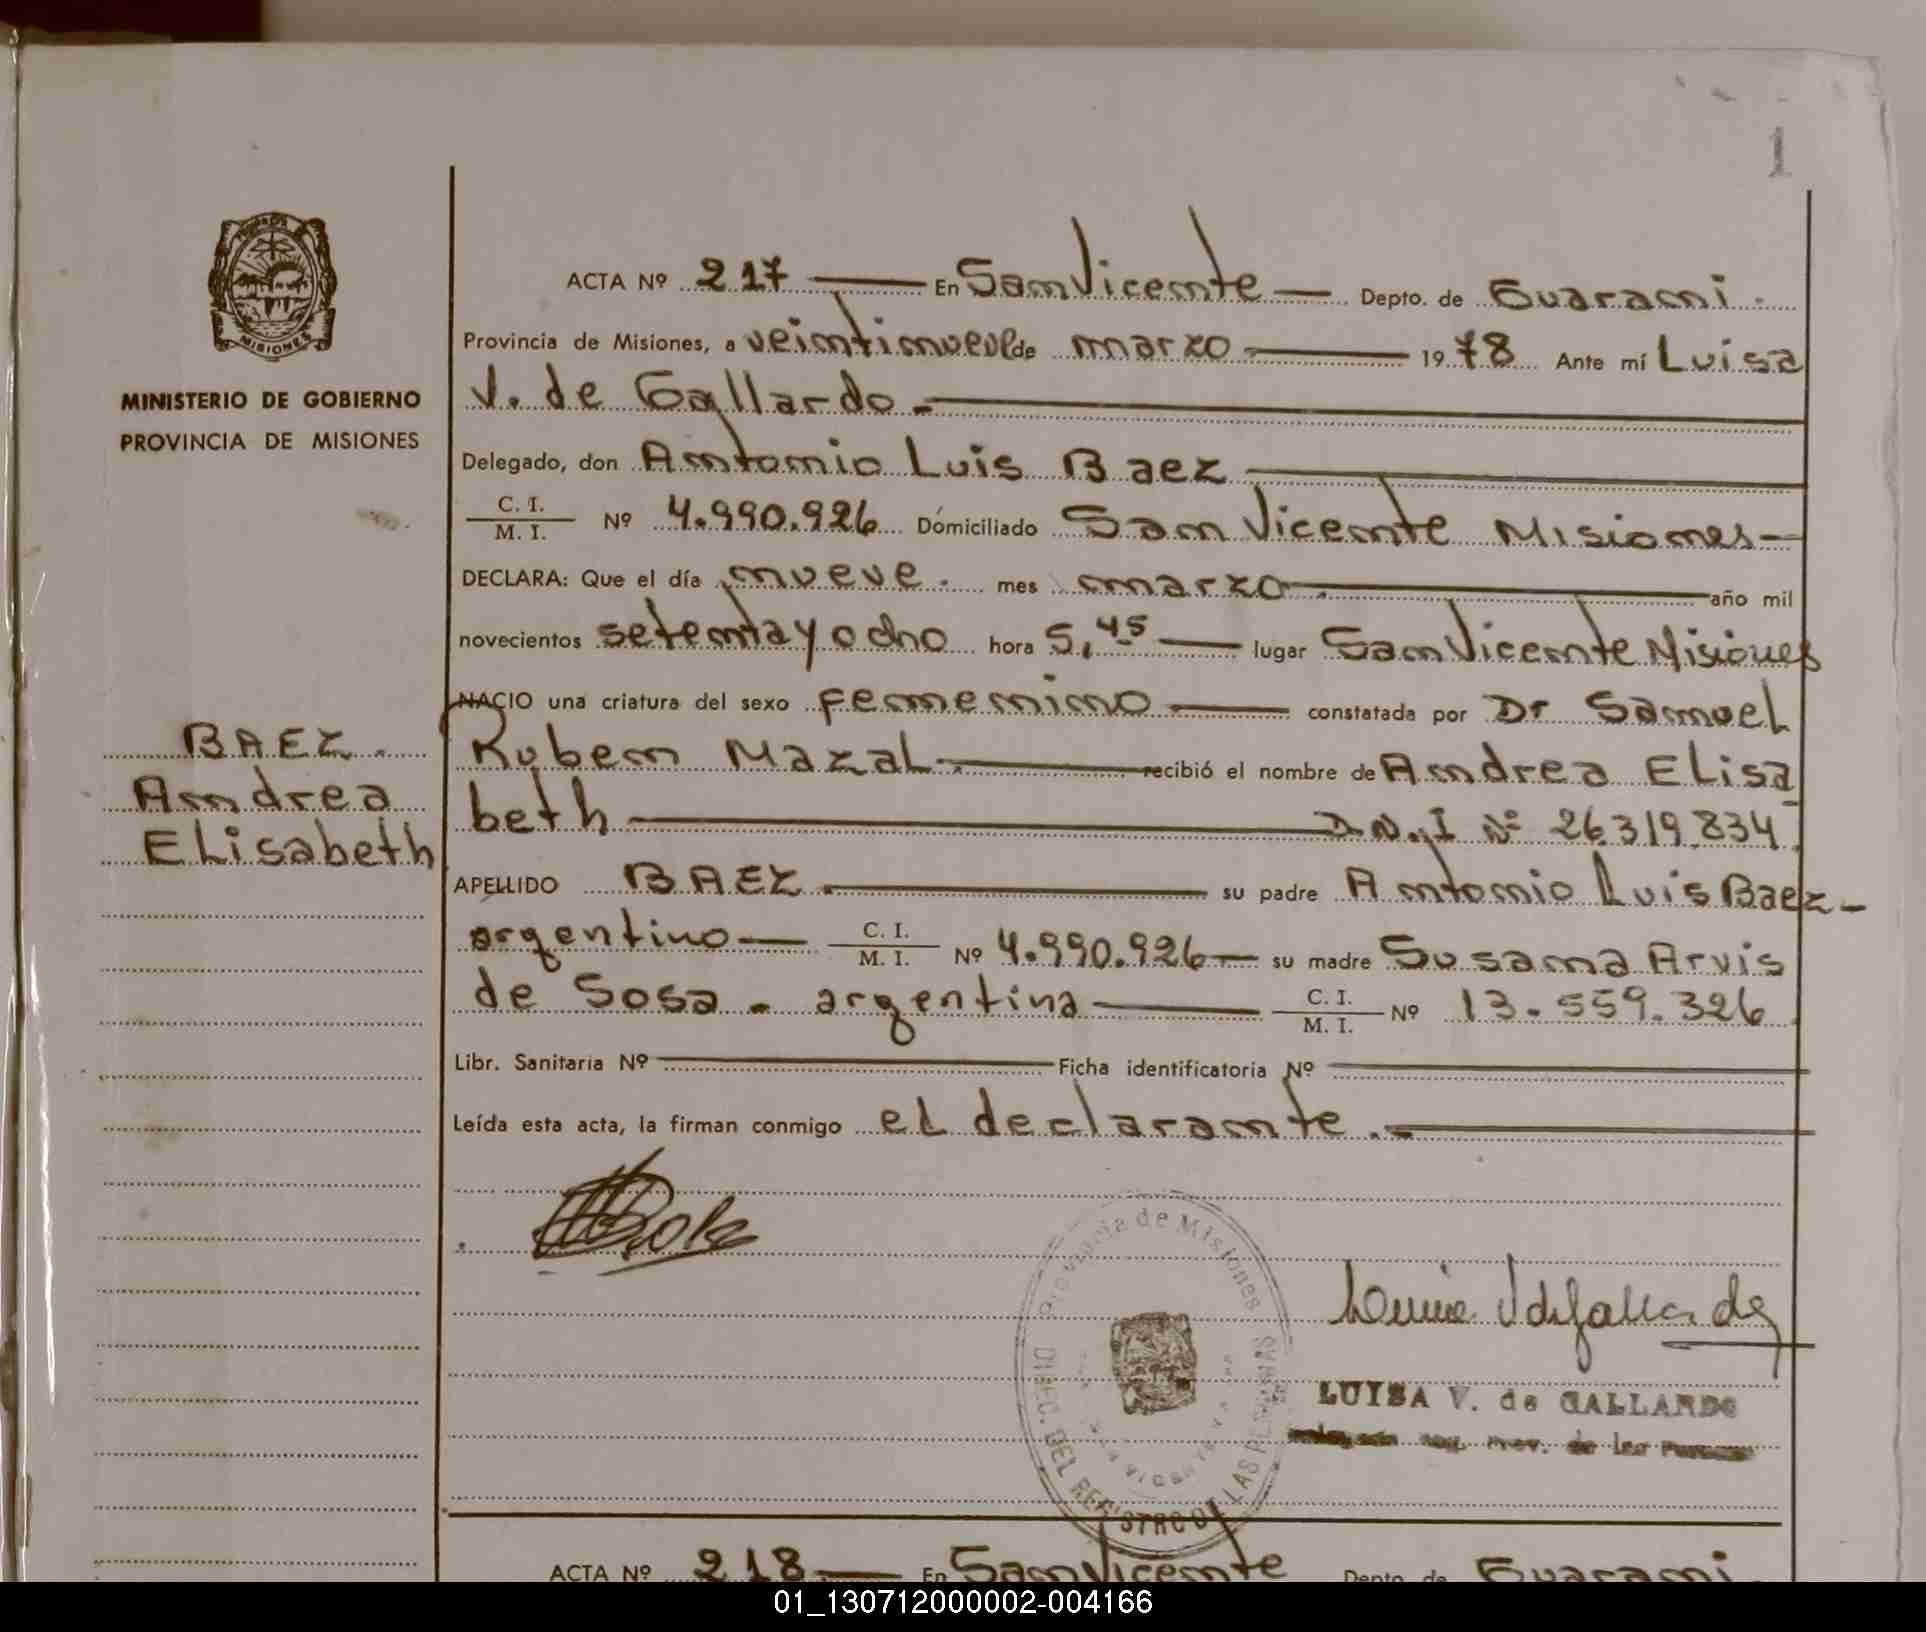 1
MISIONES
MINISTERIO DE GOBIERNO
PROVINCIA DE MISIONES
BAEZ.
Andrea
Elisabeth
ACTA Nº 217 En San Vicente Depto. de Guarani.
Provincia de Misiones, a veintinueve de marzo 1978 Ante mí Luisa
V. de Gallardo.-
Delegado, don Antonio Luis Baez
C. I.
M. I. Nº 4.990.926 Domiciliado San Vicente Misiones-
DECLARA: Que el día nueve. mes marzo. año mil
novecientos setenta y ocho hora 5,45 lugar San Vicente Misiones
NACIO una criatura del sexo femenino constatada por Dr Samuel
Ruben Mazal.- recibió el nombre de Andrea Elisa
beth D.N.I Nº 26.319.834
APELLIDO BAEZ. su padre Antonio Luis Baez-
argentino- C. I.
M. I. Nº 4.990.926- su madre Susana Arvis
de Sosa - argentina C. I.
M. I. Nº 13.559.326
Libr. Sanitaria Nº Ficha identificatoria Nº
Leída esta acta, la firman conmigo el declarante.-
Provincia de Misiones
DIREC. DEL REGISTRO DE LAS PERSONAS
LUISA V. de GALLARDO
ACTA Nº 218 En San Vicente Depto. de Guarani.
01_130712000002-004166